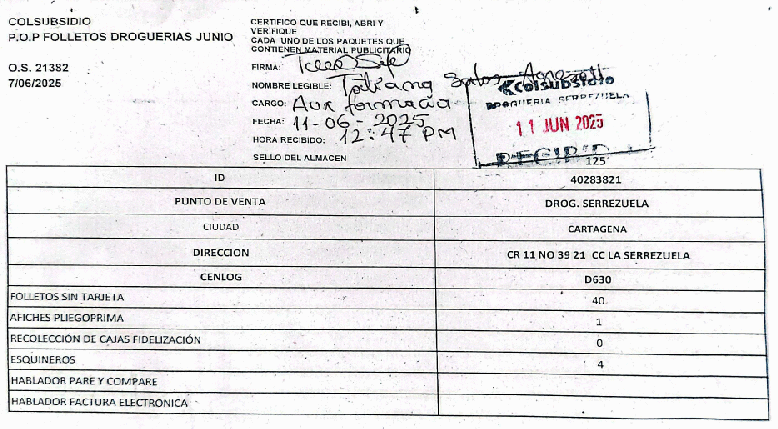 COLSUBSIDIO
P.O.P FOLLETOS DROGUERIAS JUNIO
O.S. 21382
7/06/2025
CERTIFICO QUE RECIBI, ABRI Y
VERIFIQUE
CADA UNO DE LOS PAQUETES QUE
CONTIENEN MATERIAL PUBLICITARIO
FIRMA:
NOMBRE LEGIBLE: Tatiana
CARGO: Aux farmacia
FECHA: 11-06-2025
HORA RECIBIDO: 12:47 PM
SELLO DEL ALMACEN
Colsubsidio
DROGUERIA SERREZUELA
11 JUN 2025
RECIBID
125
ID 40283821
PUNTO DE VENTA DROG. SERREZUELA
CIUDAD CARTAGENA
DIRECCION CR 11 NO 39 21 CC LA SERREZUELA
CENLOG D630
FOLLETOS SIN TARJETA 40
AFICHES PLIEGOPRIMA 1
RECOLECCIÓN DE CAJAS FIDELIZACIÓN 0
ESQUINEROS 4
HABLADOR PARE Y COMPARE
HABLADOR FACTURA ELECTRONICA